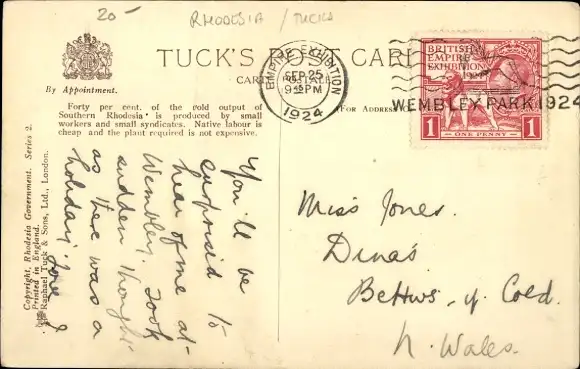 20-
RHODESIA / TUCKS
By Appointment.
TUCK'S POST CARD
CARTE POSTALE
(For Address
Forty per cent. of the gold output of
Southern Rhodesia is produced by small
workers and small syndicates. Native labour is
cheap and the plant required is not expensive.
Copyright, Rhodesia Government. Series 2.
Printed in England.
Raphael Tuck & Sons, Ltd., London.
EMPIRE EXHIBITION
SEP 25
9 PM
1924
BRITISH
EMPIRE
EXHIBITION
1924
WEMBLEY PARK 1924
1 1
ONE PENNY
You'll be
surprised to
hear of me at
Wembley. Took
sudden thought
as there was a
holiday. Love
Miss Jones.
Dinas
Bettws-y-Coed.
N. Wales.